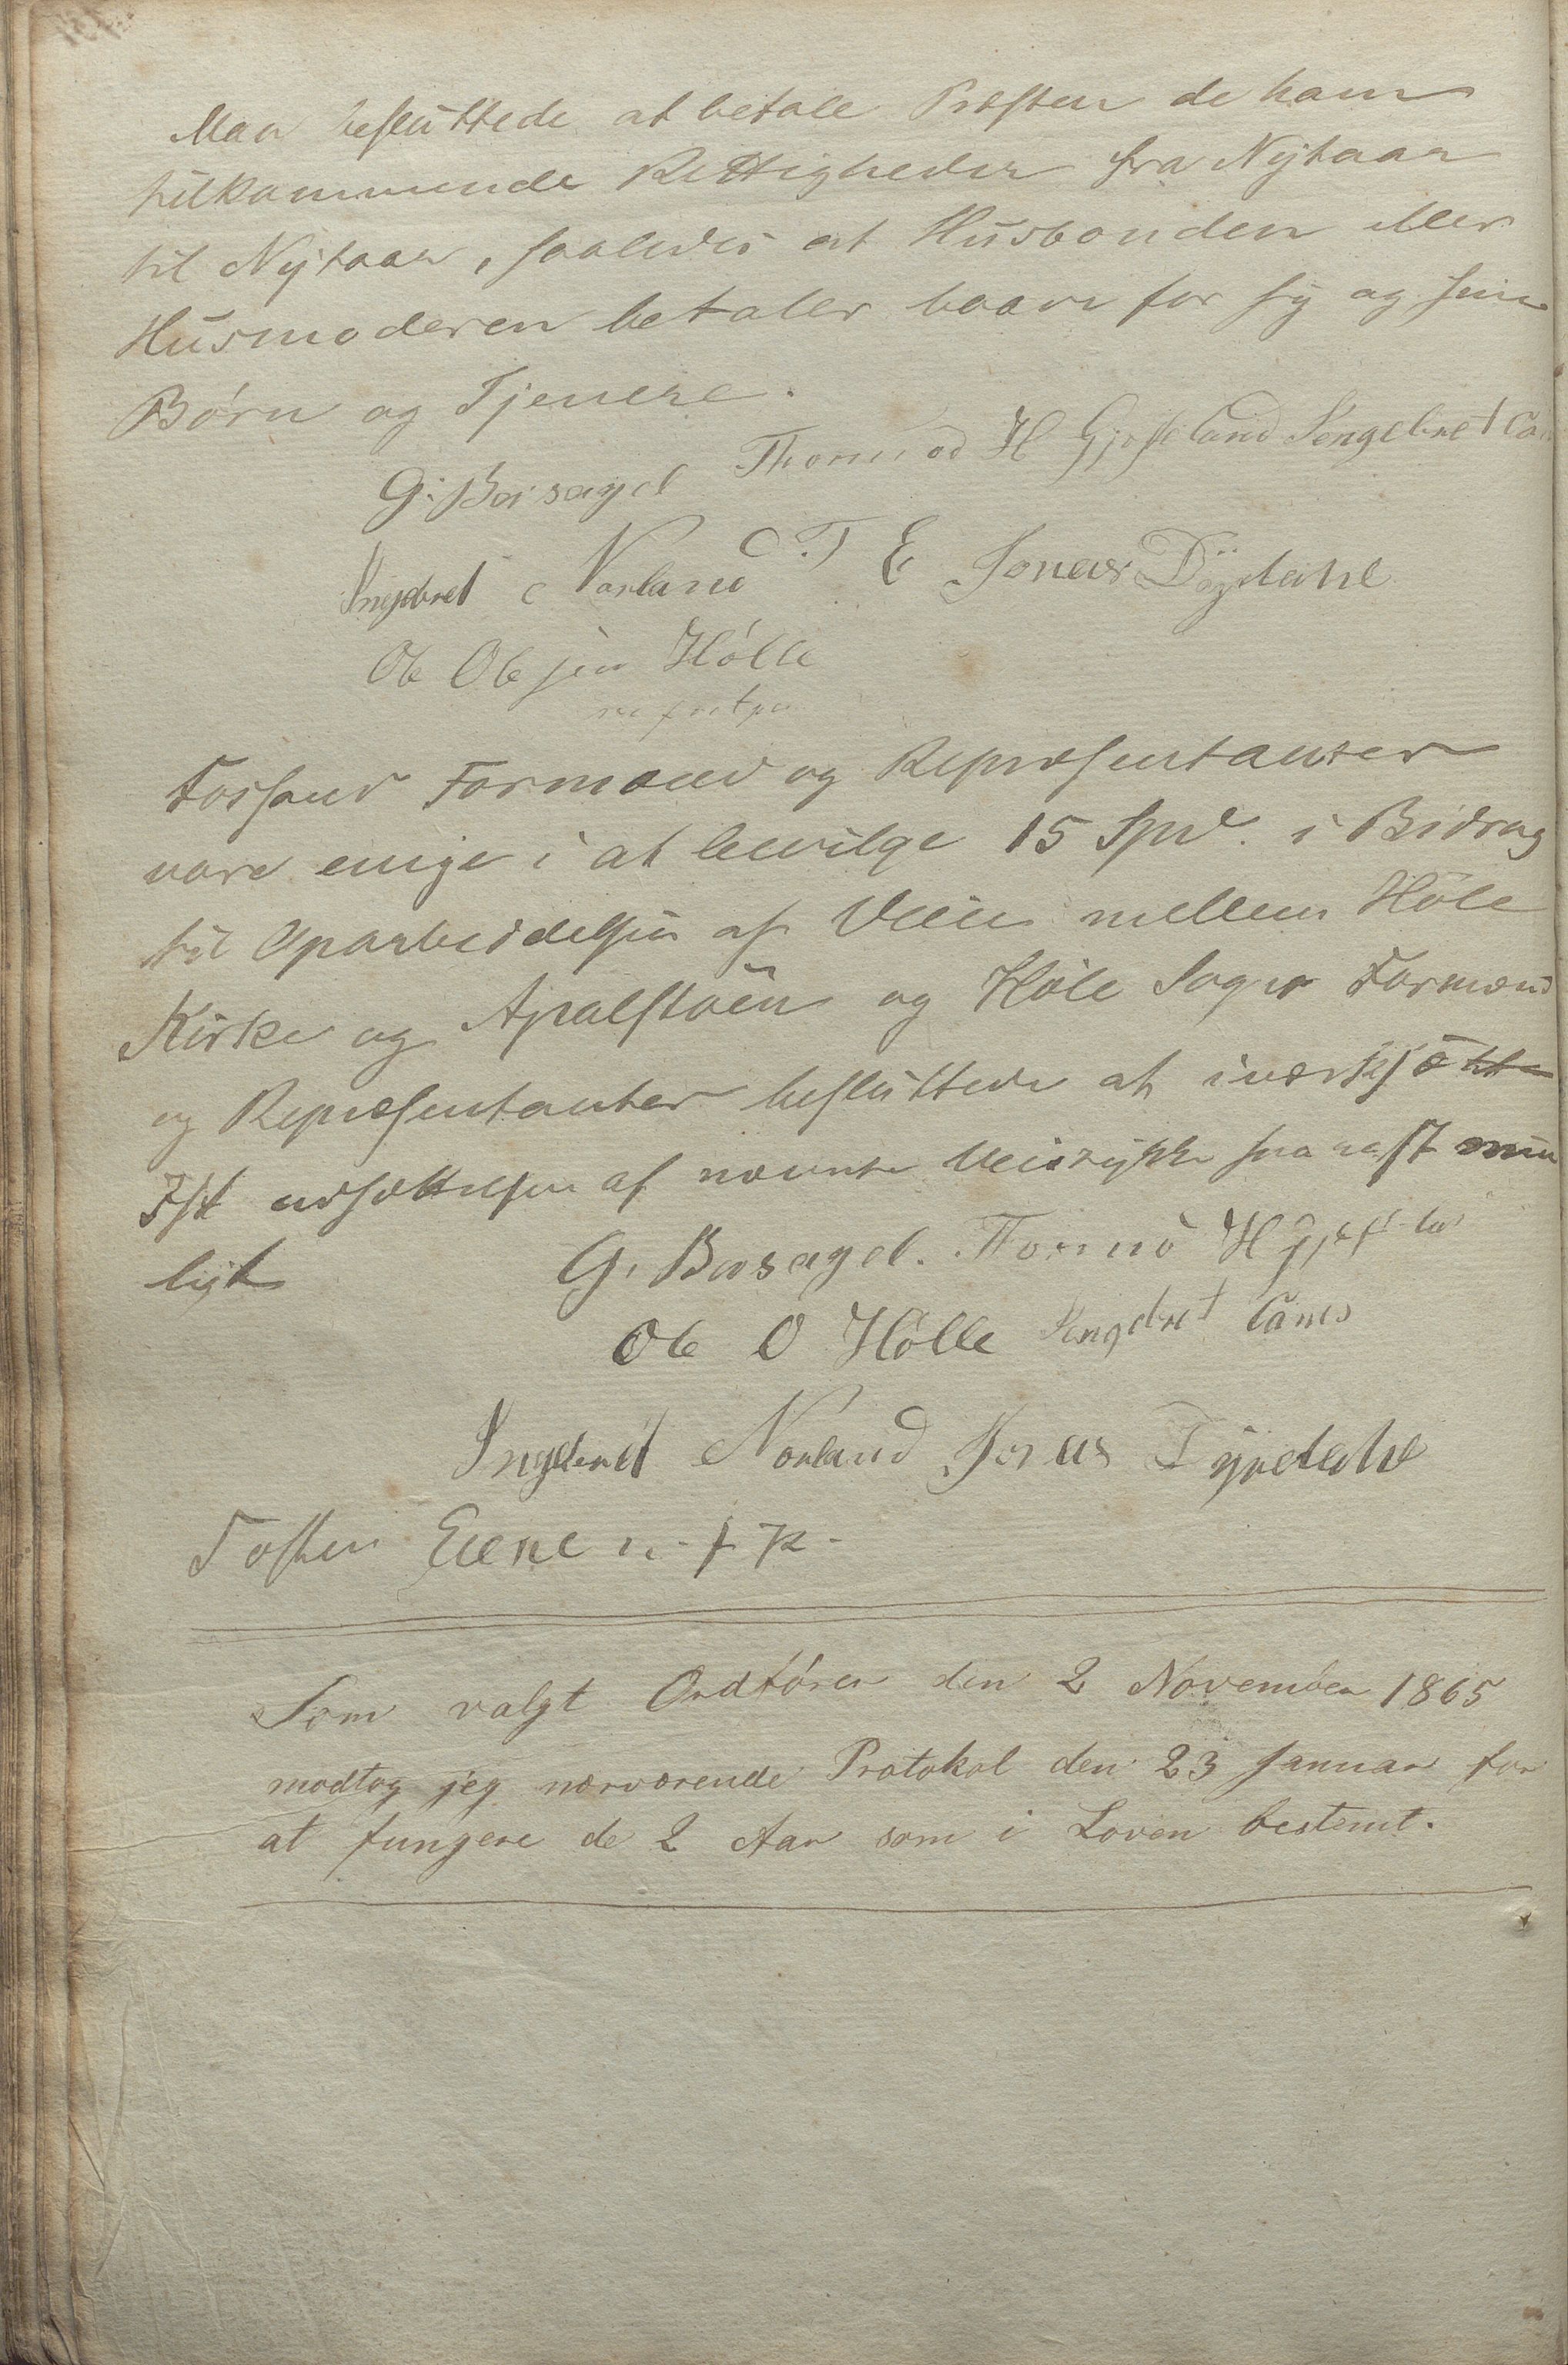 Man besluttede at betale Præsten de ham
tilkommende Rettigheder fra Nytaar
til Nytaar, saaledes at Husbonden eller
Husmoderen betaler baade for sig og sine
Børn og Tjenere.
G. Bersagel Thormod H Gjesteland Ingebret
Ingebret Norland T E Jonas Dÿrdahl
Ole Olesen Hölle
Forsand Formænd og Repræsentanter
vare enige i at bevilge 15 Spd. i Bidrag
til Oparbeidelsen af Veien mellem Höle
Kirke og Apalstøen og Höle Sogns Formænd
og Repræsentanter besluttede at iværksætte
Istandsættelsen af nævnte Veistykke snarest mu
ligt
G. Bersagel. Tormod H
Ole O Hölle Ingebret Eanes
Ingebret Norland Jonas Dÿrdahl
Tosten Eiene m. f. P.
Som valgt Ordförer den 2 November 1865
modtog jeg nærværende Protokol den 23 Januar for
at fungere de 2 Aar som i Loven bestemt.